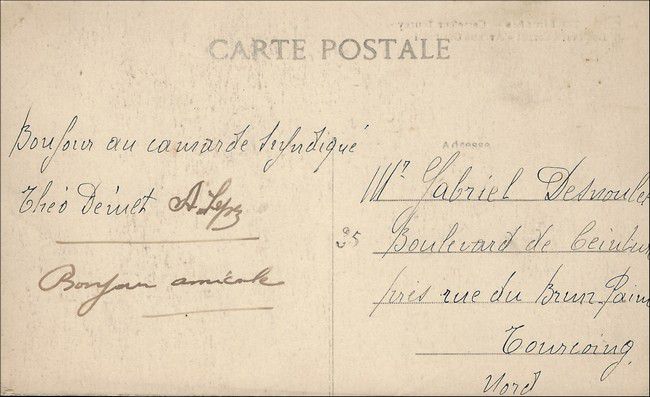 CARTE POSTALE
Bonjour au camarde Syndiqué
Théo Demet A.
Bonjour amicale
Adresse
Mr Gabriel Desnoulet
35
Boulevard de Ceinture
près rue du Brun-Pain
Tourcoing
Nord